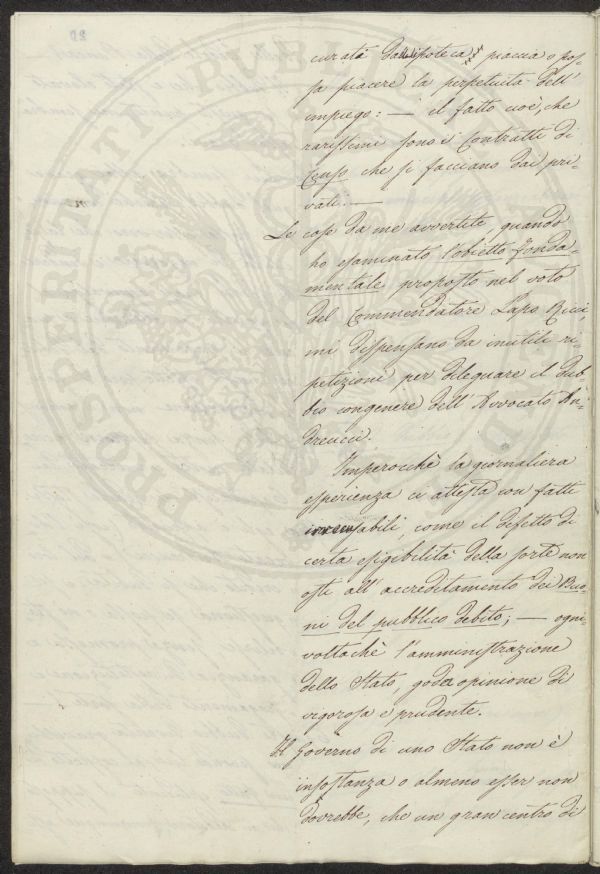 curata dall'ipoteca piaccia o pos-
sa piacere la perpetuità dell'
impiego: — il fatto cioè, che
rarissimi sono i Contratti di
Censo che si facciano dai pri-
vati. —
Le cose da me avvertite, quando
ho esaminato l'obietto fonda-
mentale proposto nel voto
del Commendatore Lapo Ricci
mi dispensano da inutili ri-
petizioni per dileguare il dub-
bio congenere dell'Avvocato An-
dreucci.
Imperocchè la giornaliera
esperienza ci attesta con fatti
irrecusabili, come il difetto di
certa esigibilità della sorte non
osti all'accreditamento dei Buo-
ni del pubblico debito; — ogni-
voltachè l'amministrazione
dello Stato, goda opinione di
vigorosa e prudente.
Il Governo di uno Stato non è
insostanza o almeno esser non
dovrebbe, che un gran centro di
PROSPERITATI PUBL